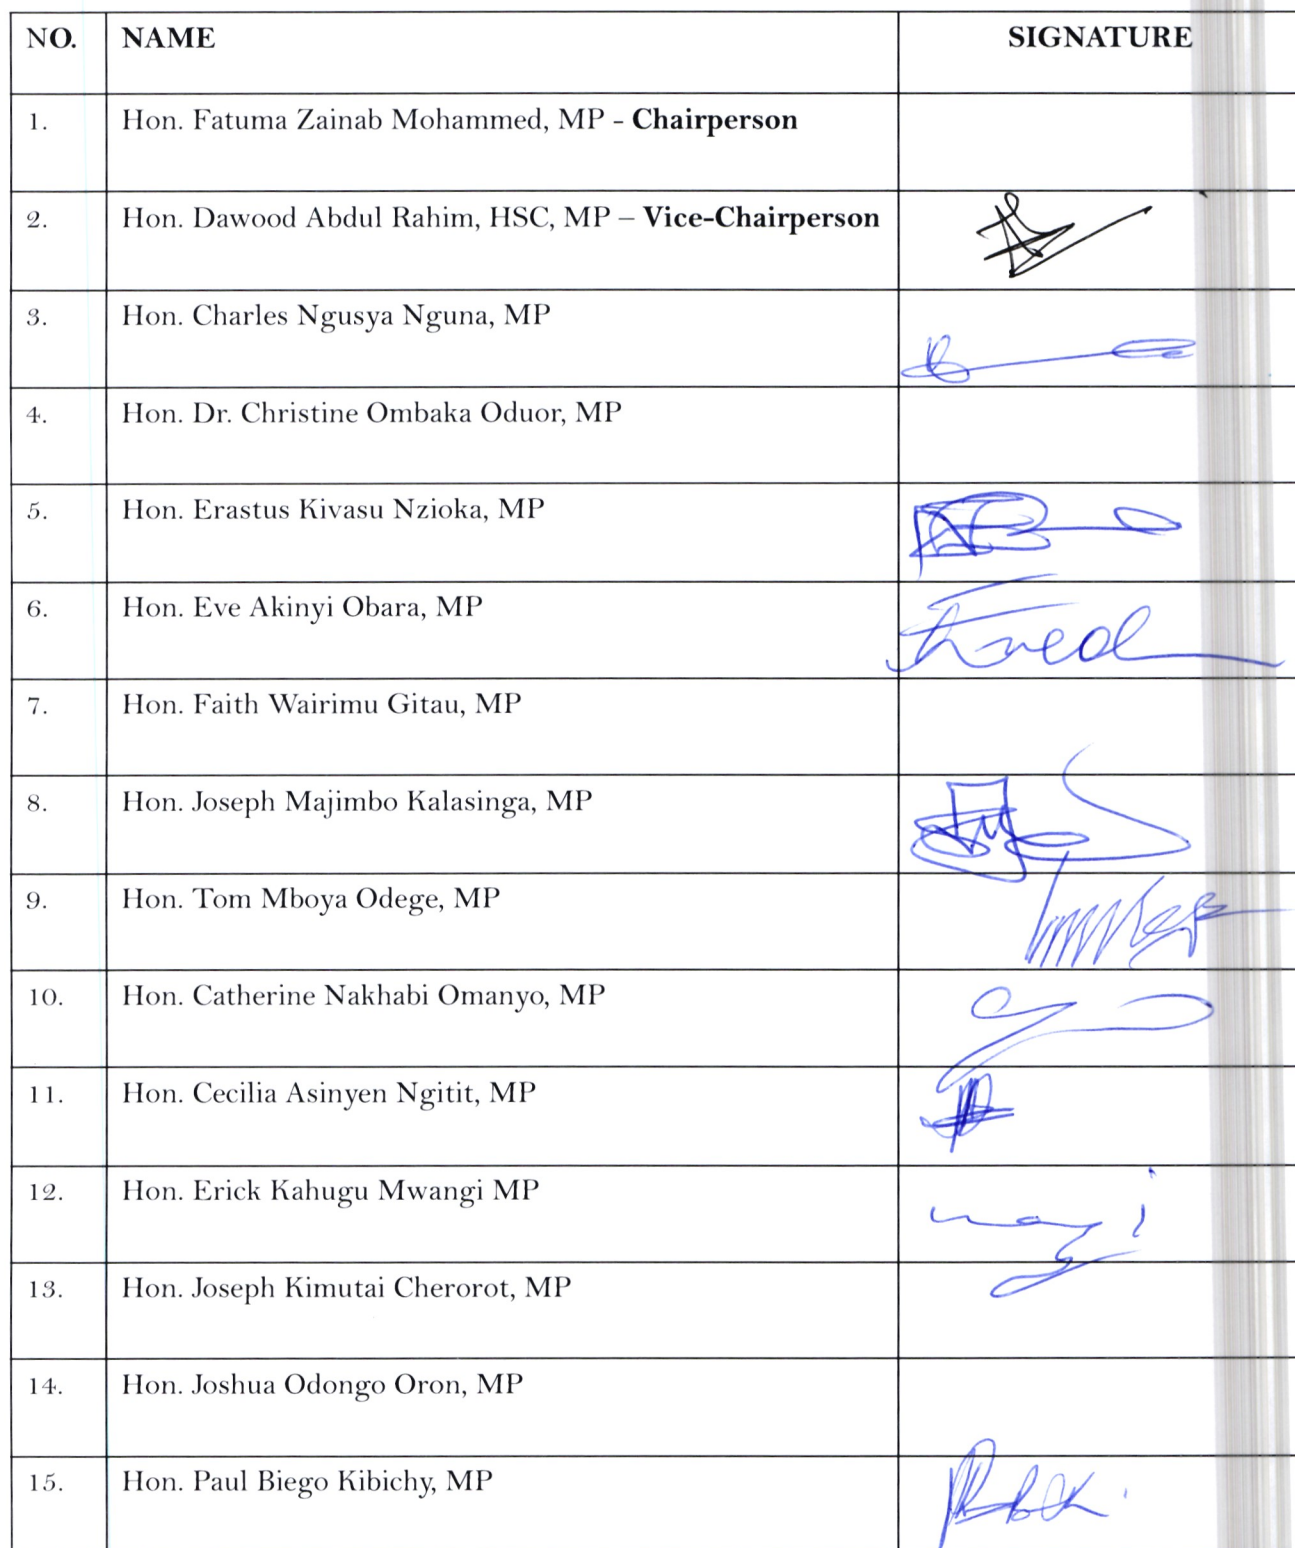 NO. NAME SIGNATURE
1. Hon. Fatuma Zainab Mohammed, MP - Chairperson
2. Hon. Dawood Abdul Rahim, HSC, MP – Vice-Chairperson
3. Hon. Charles Ngusya Nguna, MP
4. Hon. Dr. Christine Ombaka Oduor, MP
5. Hon. Erastus Kivasu Nzioka, MP
6. Hon. Eve Akinyi Obara, MP
7. Hon. Faith Wairimu Gitau, MP
8. Hon. Joseph Majimbo Kalasinga, MP
9. Hon. Tom Mboya Odege, MP
10. Hon. Catherine Nakhabi Omanyo, MP
11. Hon. Cecilia Asinyen Ngitit, MP
12. Hon. Erick Kahugu Mwangi MP
13. Hon. Joseph Kimutai Cherorot, MP
14. Hon. Joshua Odongo Oron, MP
15. Hon. Paul Biego Kibichy, MP